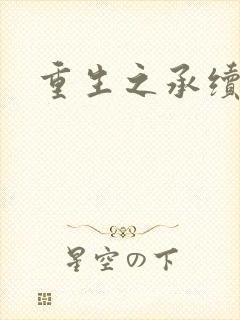 重生之承续
星空の下